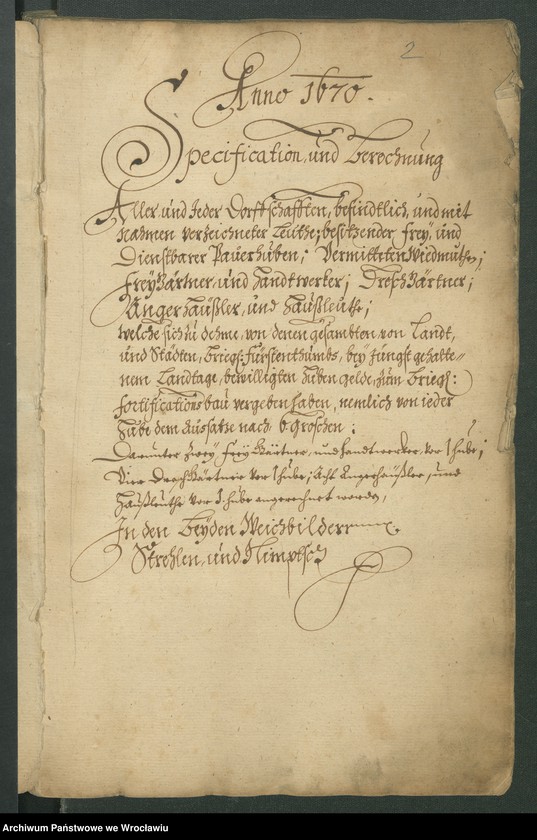 2
Anno 1670.
Specification, und Berechnung
Aller und Jeder Dorffschafften, befindtlich, und mit
Nahmen verzeichneter Leuthe; besitzender Frey, und
Dienstbarer Pauerhuben; Vermitteten Wiedmuthen;
FreyGärtner, und Handtwerker; DreschGärtner;
Angerhäußler, und Haußleuthe;
welche sich zu dehme, von denen gesambten von Landt,
und Städten, Briegs: Fürstenthumbs, bey Jüngst gehalte-
nem Landtage, bewilligten Huben gelde, zum Briegs:
Fortifications bau vergeben haben, nemlich von ieder
Hube dem Aussatze nach 6 Groschen:
Darunter Zwey FreyGärtner, und Handtwercker, vor 1 hube;
Vier DreschGärtner vor 1 hube; Acht Angerhäußler, und
Haußleuthe vor 1. hube angerechnet worden,
In den Beyden Weichbildern
Strehlen, und Nimptsch
Archiwum Państwowe we Wrocławiu